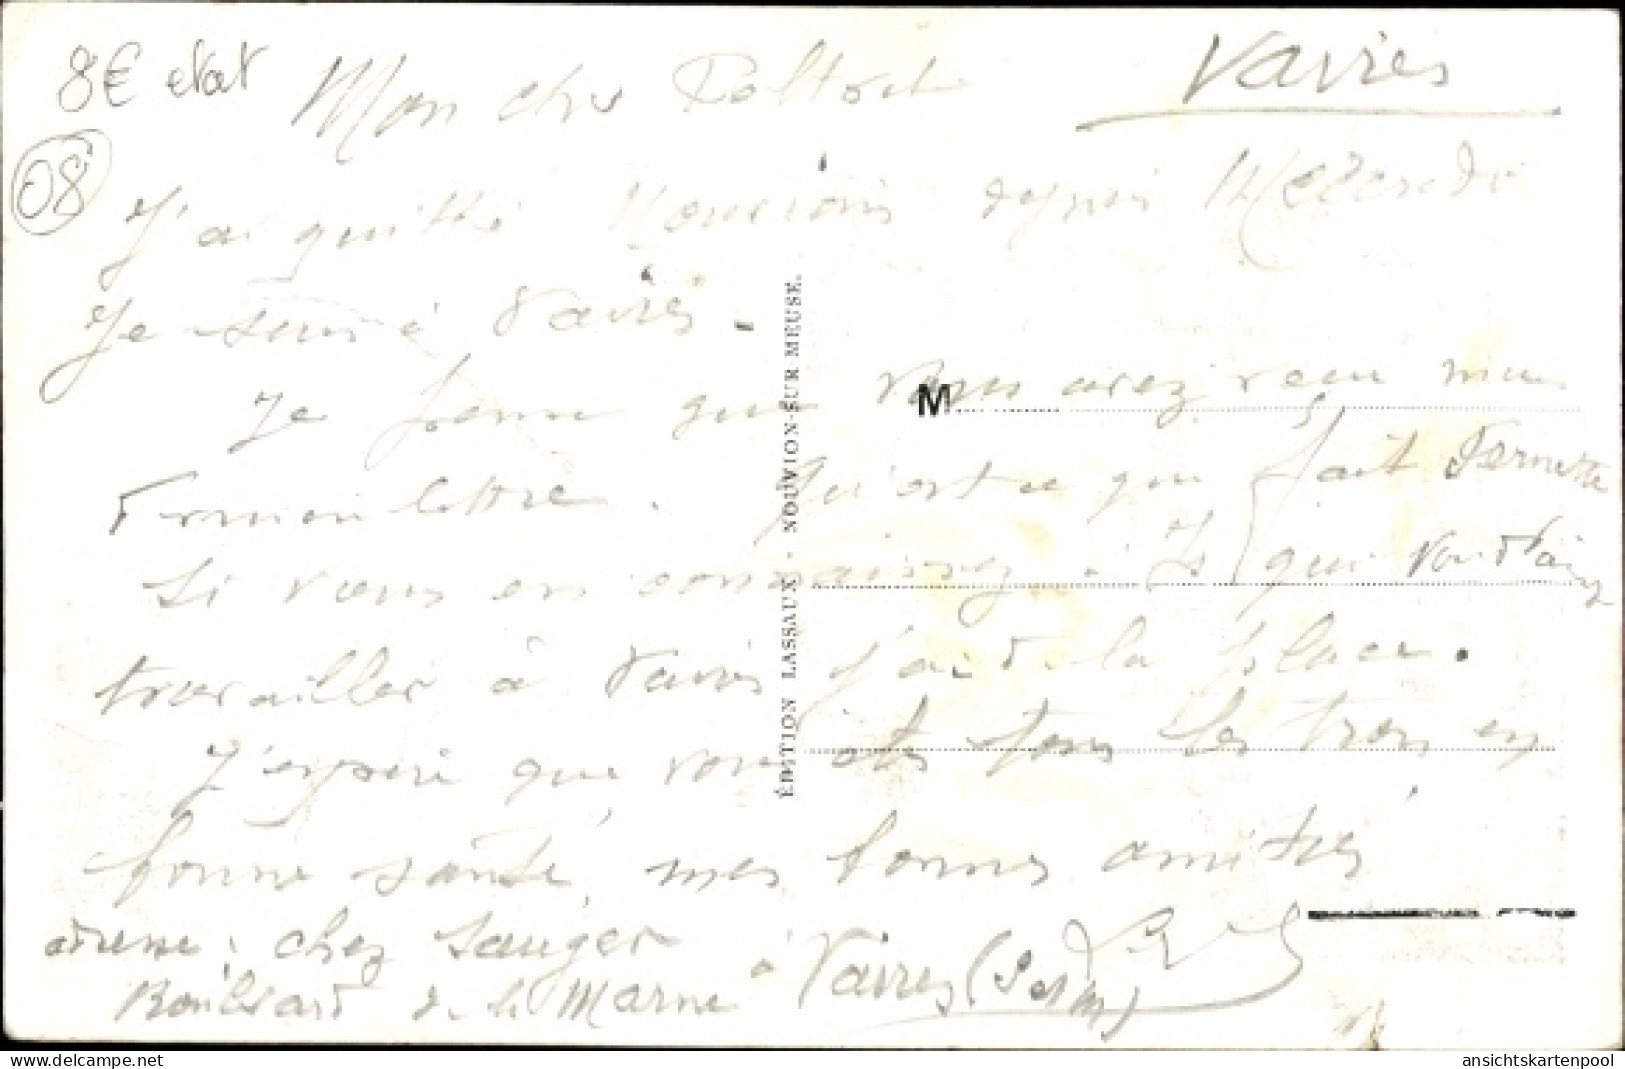 8€ etat
08
Vaires
Mon cher
J'ai quitté depuis Mercredi
Je suis à Vaires.
Je pense que vous avez recu mon
lettre. Qu'est ce que fait
Si vous en connaissez qui
travailler à Vaires j'ai de la place.
J'espere que vous etes tous les trois en
bonne santé, mes bonnes amitiés
adresse: chez Sauger
Boulevard de la Marne à Vaires (S et M)
M
ÉDITION LASSAUX - NOUVION-SUR MEUSE.
delcampe.net
ansichtskartenpool